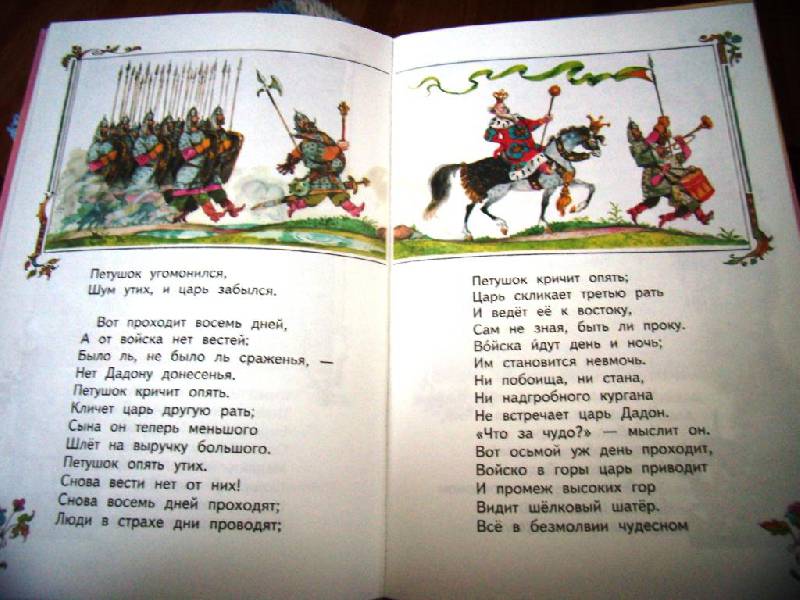 Петушок угомонился,
Шум утих, и царь забылся.
Вот проходит восемь дней,
А от войска нет вестей:
Было ль, не было ль сраженья, —
Нет Дадону донесенья.
Петушок кричит опять.
Кличет царь другую рать;
Сына он теперь меньшого
Шлёт на выручку большого.
Петушок опять утих.
Снова вести нет от них!
Снова восемь дней проходят;
Люди в страхе дни проводят;
Петушок кричит опять;
Царь скликает третью рать
И ведёт её к востоку,
Сам не зная, быть ли проку.
Во́йска йдут день и ночь;
Им становится невмочь.
Ни побоища, ни стана,
Ни надгробного кургана
Не встречает царь Дадон.
«Что за чудо?» — мыслит он.
Вот осьмой уж день проходит,
Войско в горы царь приводит
И промеж высоких гор
Видит шёлковый шатёр.
Всё в безмолвии чудесном